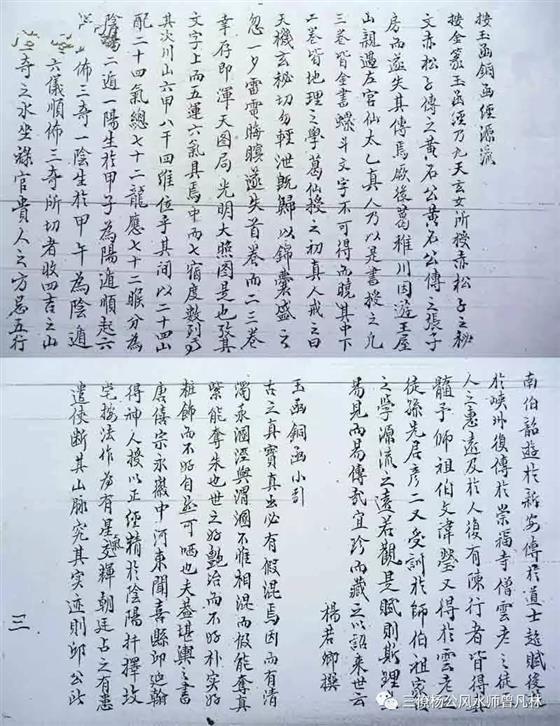 按玉函銅函經源流
按金籙玉函經乃九天玄女所授赤松子之秘
文赤松子傳之黃石公黃石公傳之張子
房而遂失其傳焉厥後葛稚川因遊王屋
山親遇左宫仙太乙真人乃以是書授之凡
三卷皆金書蝌斗文字不可得而曉其中下
二卷皆地理之學葛仙授之初真人戒之曰
天機玄秘切勿輕泄既歸以錦囊盛之
忽一夕雷電晦暝遂失首卷而二三卷
幸存即渾天图局光明大照图是也攷其
文字上而五運六氣具焉中而七宿度數列焉
其次川山六甲八干四維位乎其間以二十四山
配二十四氣總七十二龍應七十二候分為
陰陽二遁一陽生於甲子為陽遁順起六
佈三奇一陰生於甲午為陰遁
六儀順佈三奇所切者收四吉之山
奇之水坐祿官貴人之方忌五行
南伯韶遊於新安傳於道士趙賦後
於峽外復傳於崇福寺僧雲老之徒
人之惠遠及於人復有陳行者皆得其
髓予師祖伯文諱瑩又得於雲老
徒孫先居彦二又受訓於師伯祖家
之學源流之遠若觀是賦則斯理
易見而易傳哉宜珍而藏之以詔来世云
楊若卿撰
玉函銅函小引
古之真寶真出必有假混焉因而有清
濁乘涸涇與渭涸不惟相混而假能奪真
紫能奪朱也世之好艷冶而不好朴實好
粧飾而不好自然可哂也夫葢堪輿之書
唐僖宗永徽中河東聞喜縣邱延翰
得神人授以正經精於陰陽扦擇坟
宅法作为有星變輝朝廷占之有患
遣使断其山脉究其实迹則邱公此
三
三僚杨公风水师曾凡林